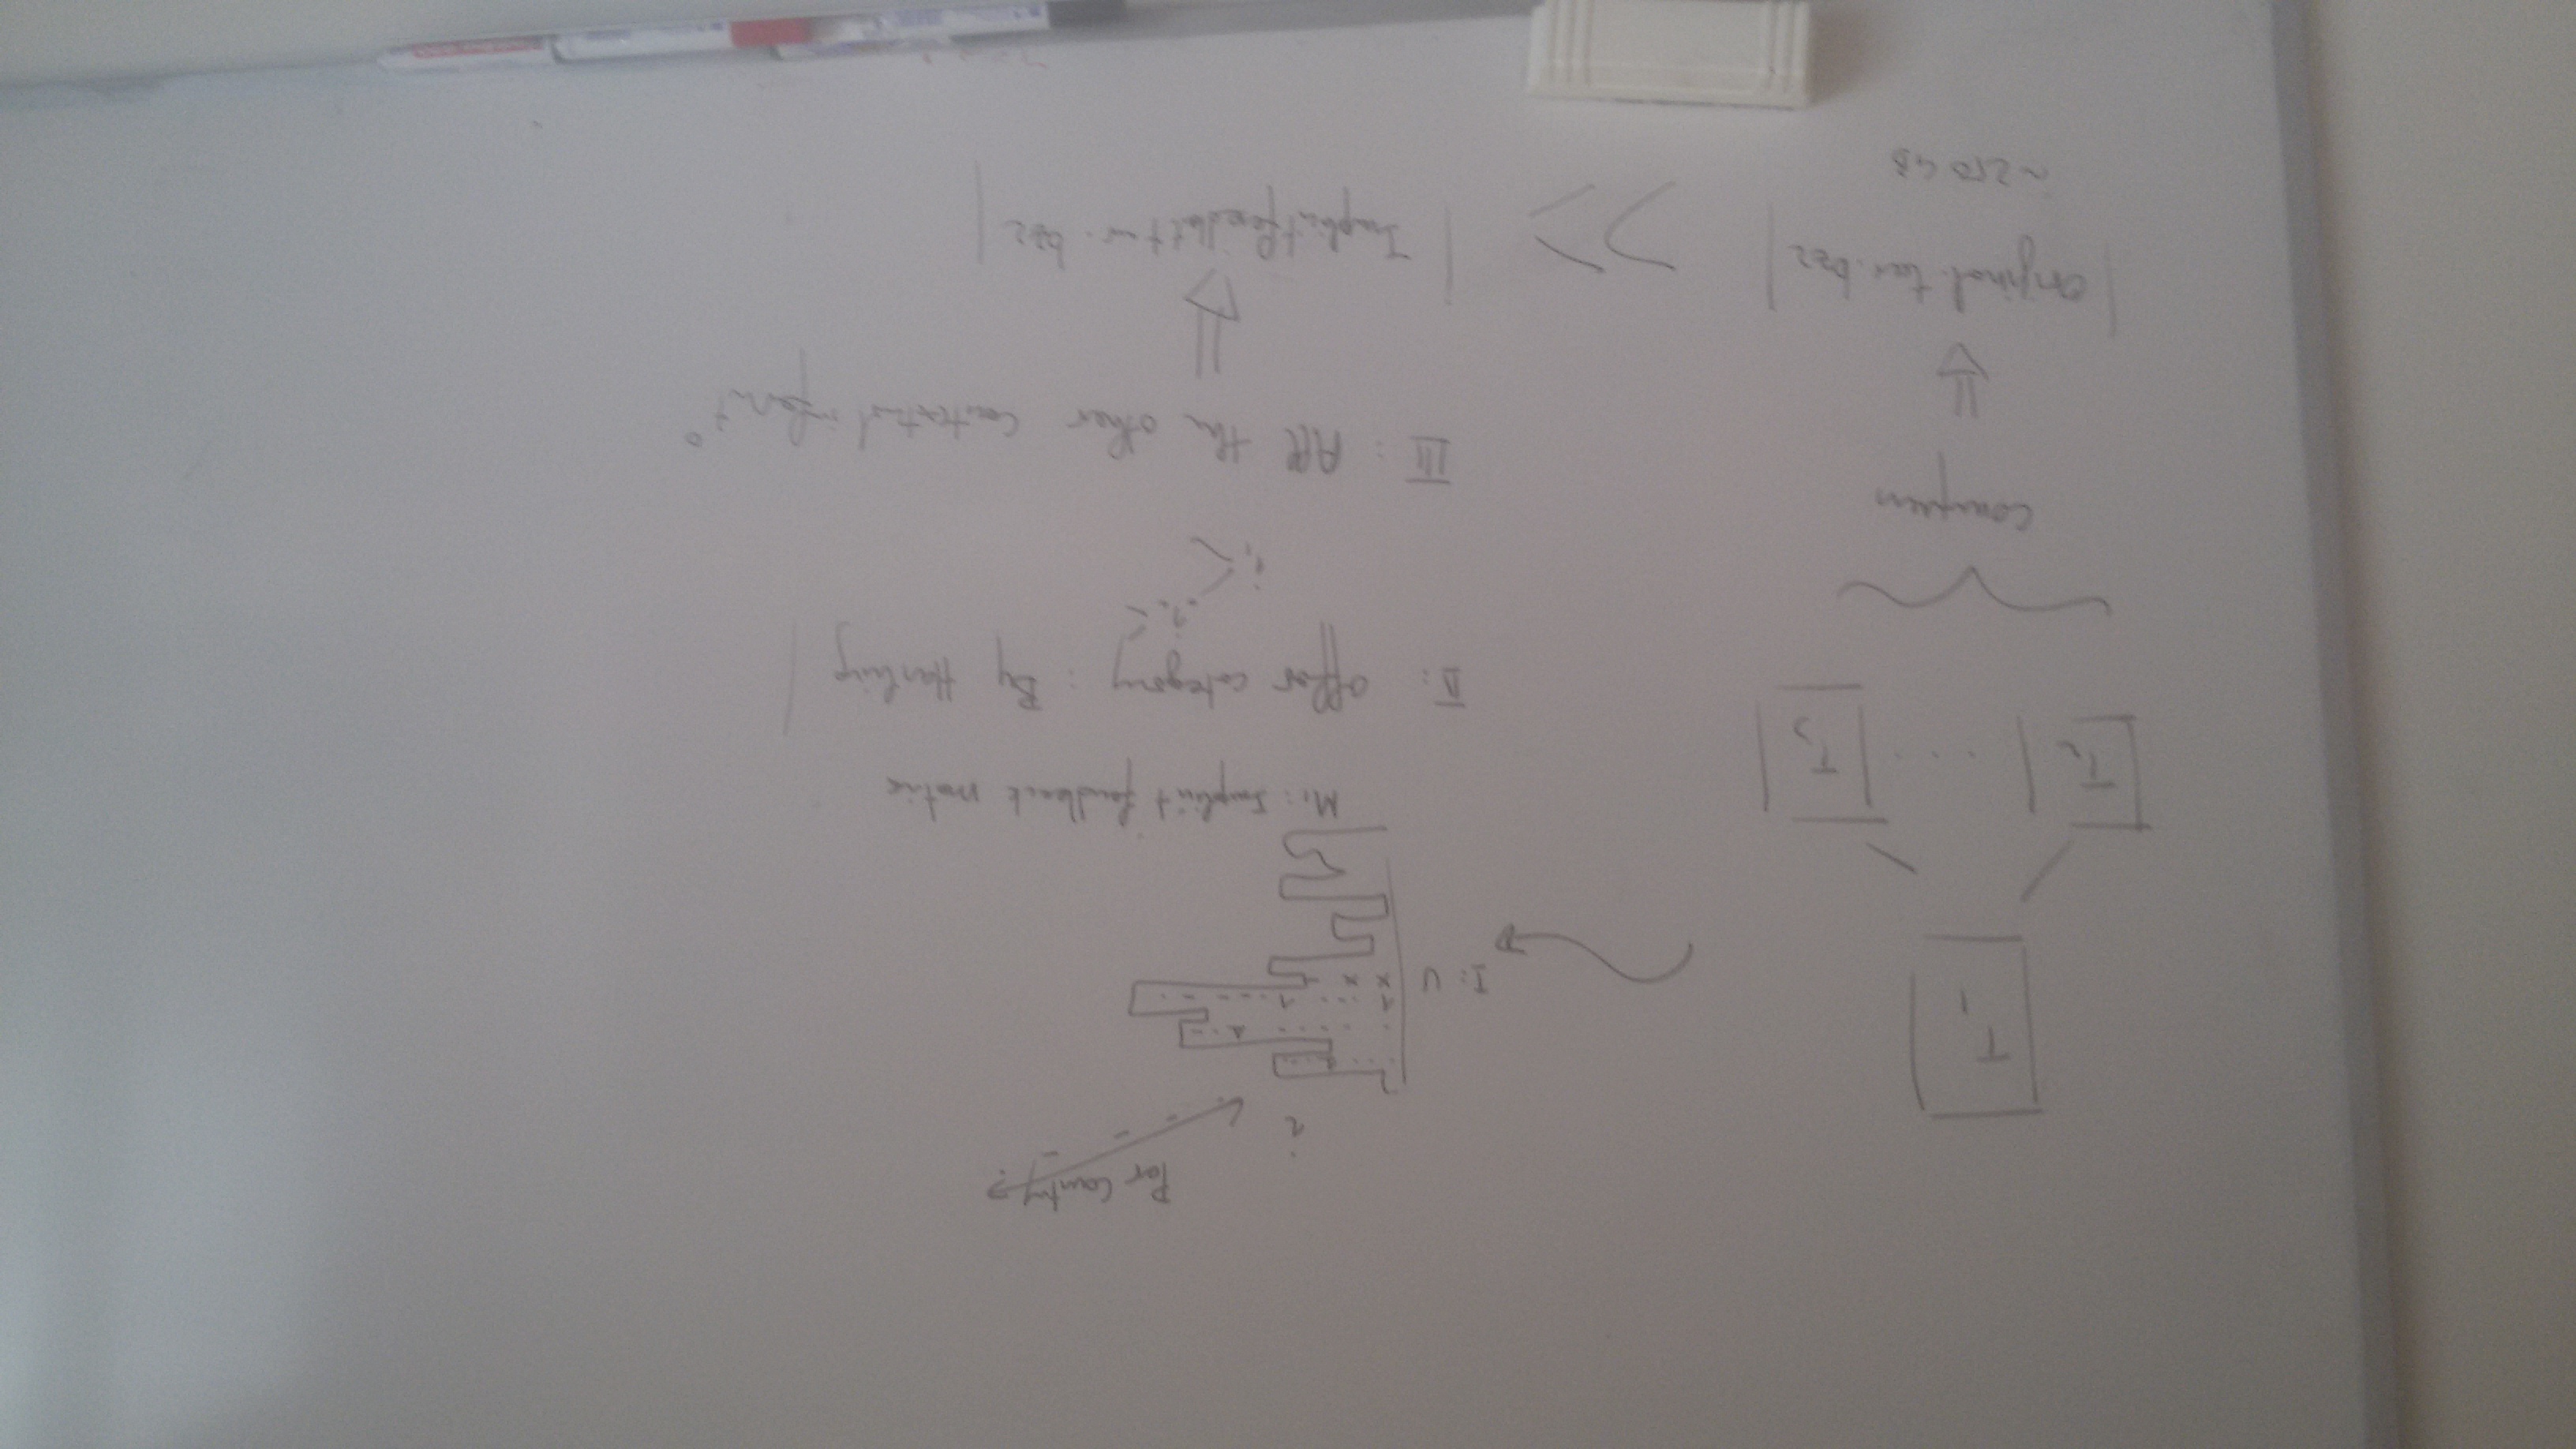 T1
T2 ... T3
compress
original.tar.bz2
~250 GB
Per Country ?
i
I: U
1
1 ... 1
x x
M1: Implicit feedback matrix
II: offer category: By Hashing
i1
III: All the other contextual informt°
>>
Implicitfeedbattar.bz2